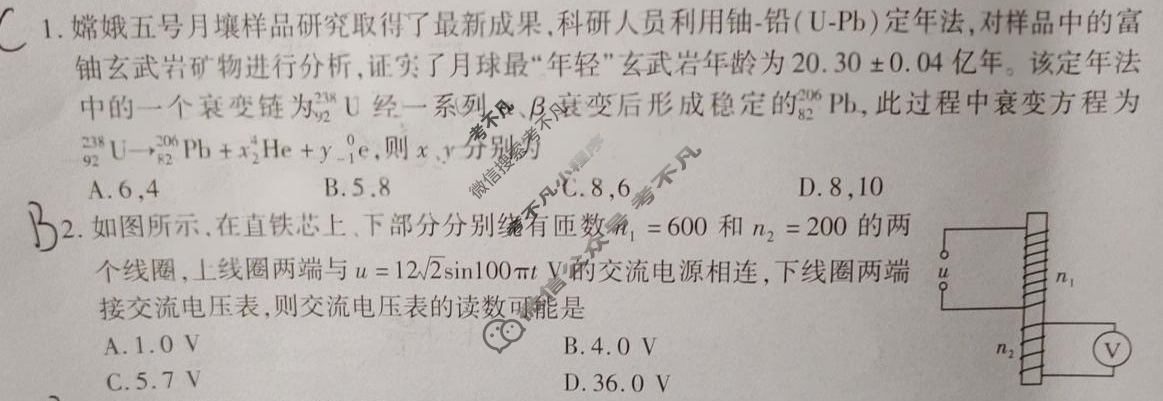 C 1. 嫦娥五号月壤样品研究取得了最新成果,科研人员利用铀-铅(U-Pb)定年法,对样品中的富
铀玄武岩矿物进行分析,证实了月球最“年轻”玄武岩年龄为 20.30 ±0.04 亿年。该定年法
中的一个衰变链为²³⁸₉₂U 经一系列 、β 衰变后形成稳定的²⁰⁶₈₂Pb,此过程中衰变方程为
²³⁸₉₂U→²⁰⁶₈₂Pb + x⁴₂He + y⁰₋₁e,则 x、y 分别为
A. 6,4 B. 5.8 C. 8,6 D. 8,10
B 2. 如图所示,在直铁芯上、下部分分别绕有匝数 n₁ = 600 和 n₂ = 200 的两
个线圈,上线圈两端与 u = 12√2sin100πt V 的交流电源相连,下线圈两端
接交流电压表,则交流电压表的读数可能是
A. 1.0 V B. 4.0 V
C. 5.7 V D. 36.0 V
u
n₁
n₂
V
考不凡
微信搜索考不凡
考不凡小程序
微信公众号 考不凡